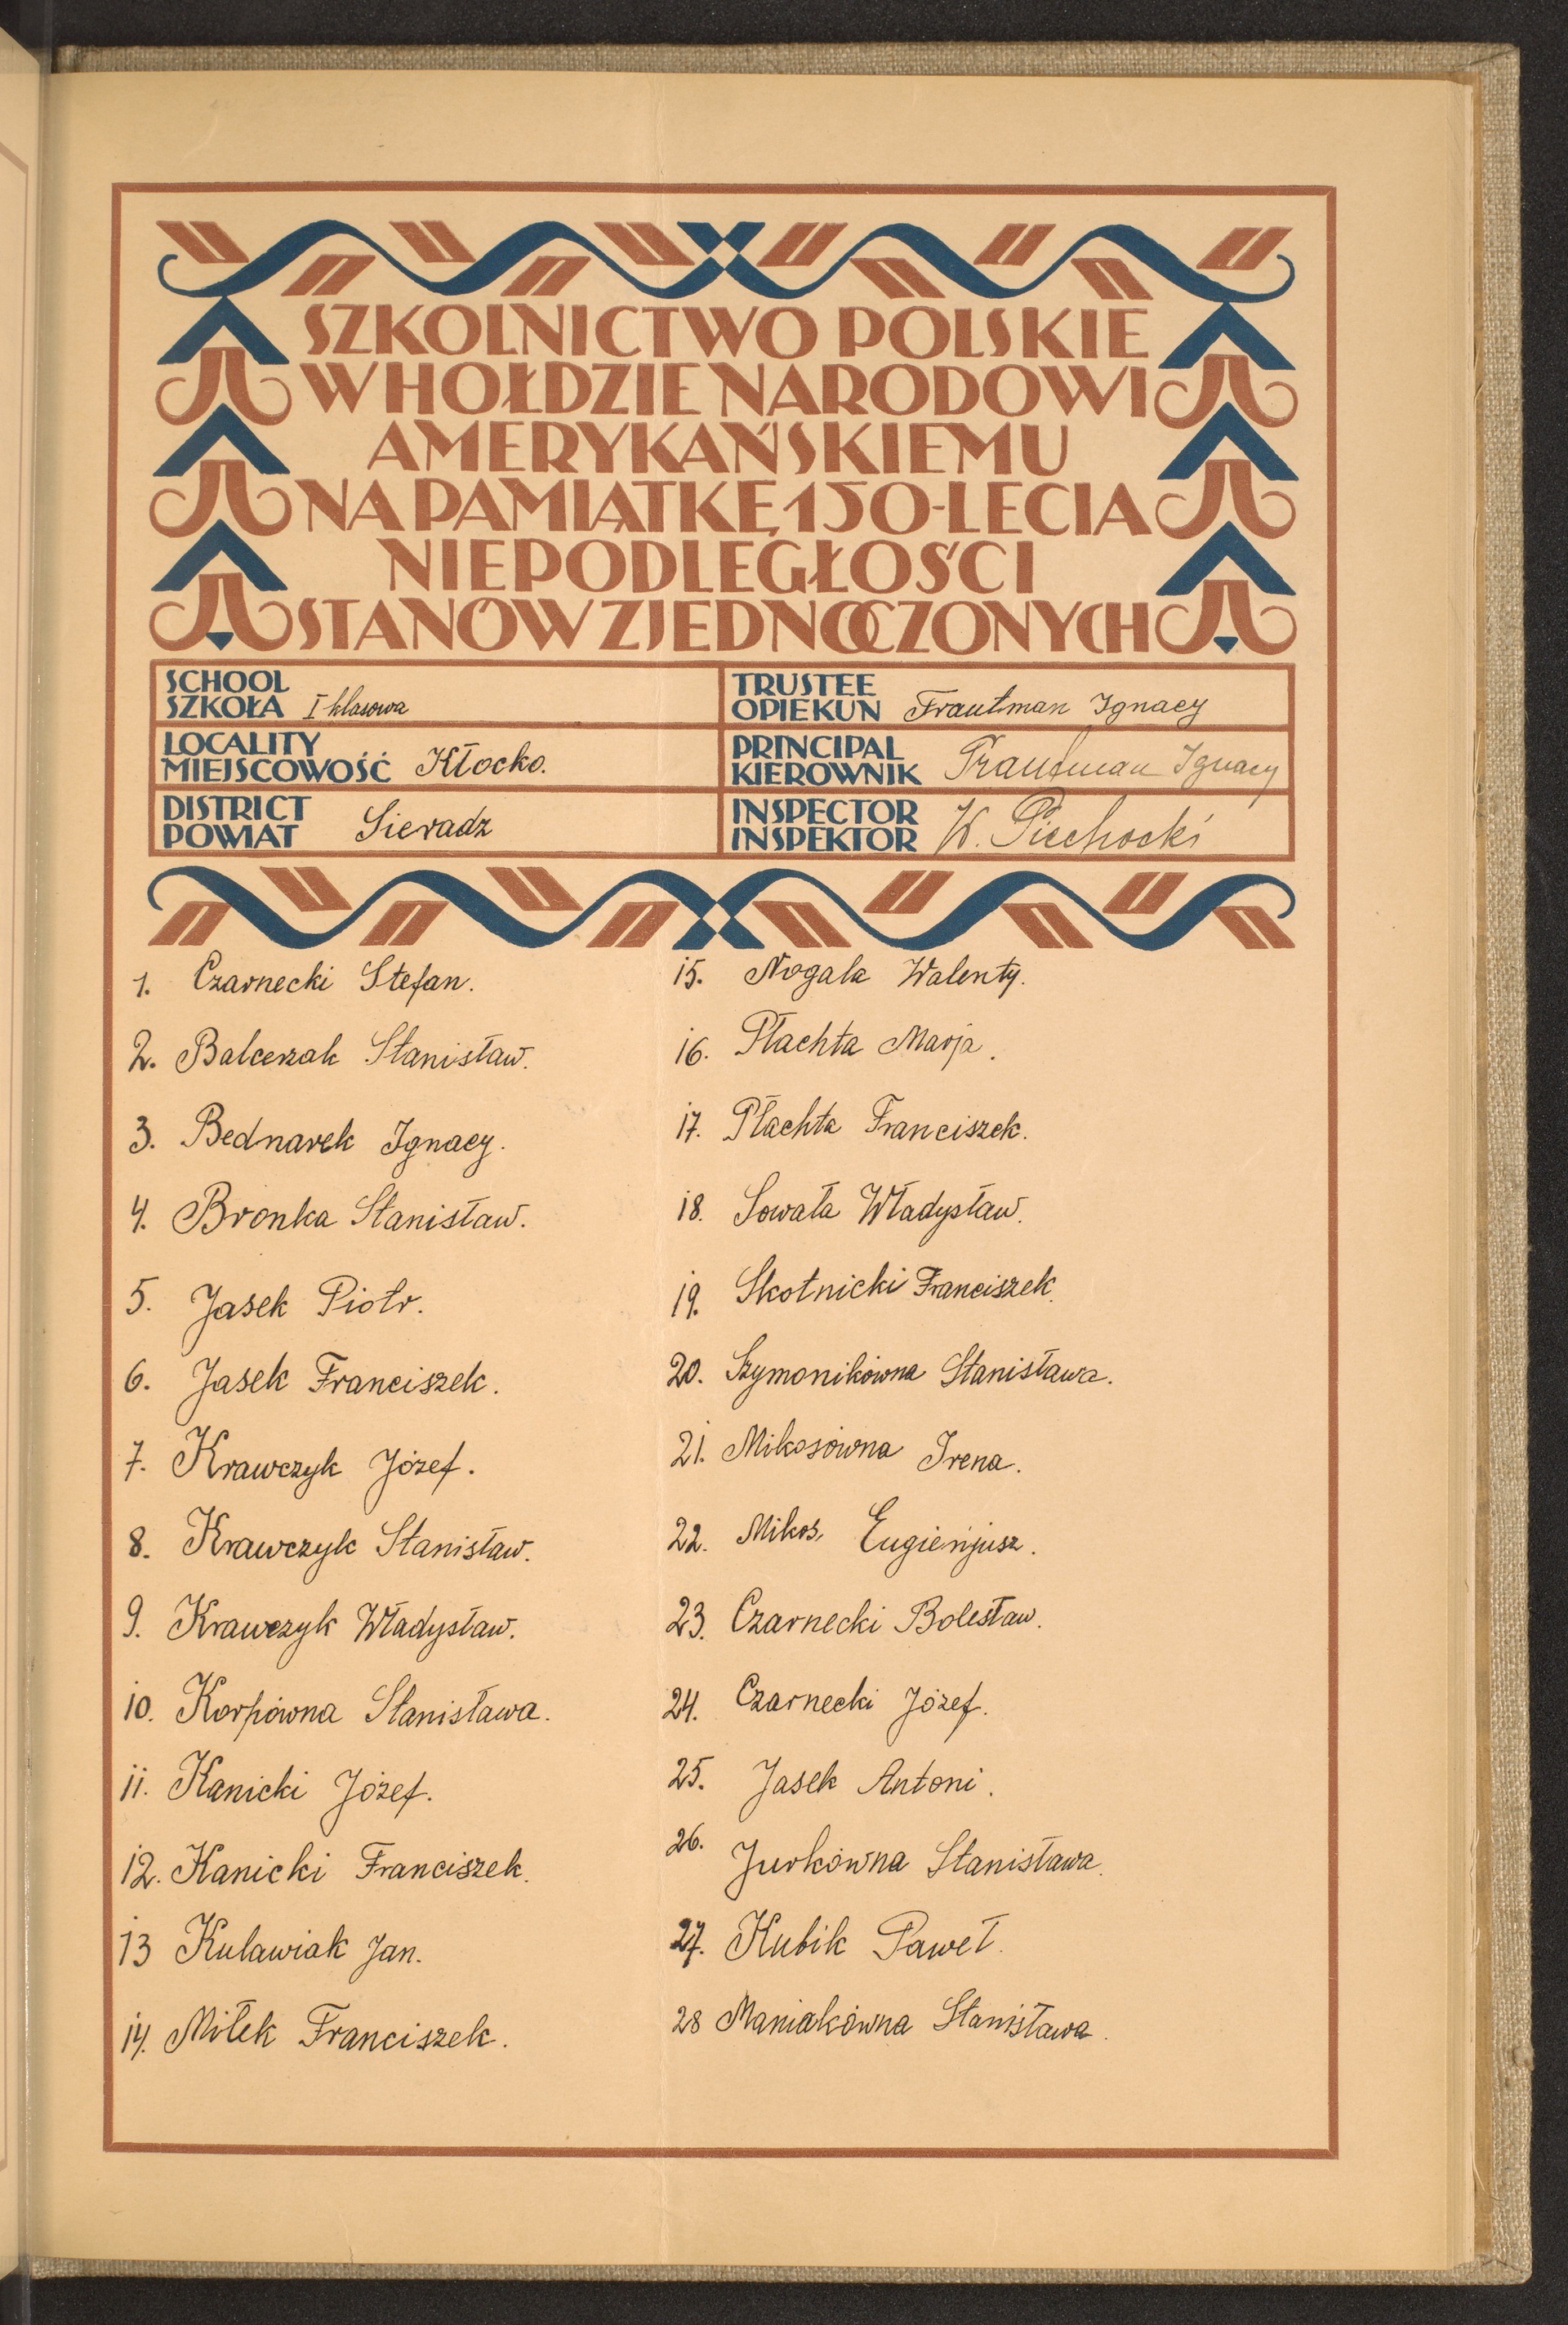 SZKOLNICTWO POLSKIE
W HOŁDZIE NARODOWI
AMERYKAŃSKIEMU
NA PAMIĄTKĘ 150-LECIA
NIEPODLEGŁOŚCI
STANÓW ZJEDNOCZONYCH
SCHOOL
SZKOŁA I klasowa
TRUSTEE
OPIEKUN Trautman Ignacy
LOCALITY
MIEJSCOWOŚĆ Kłocko.
PRINCIPAL
KIEROWNIK Trautman Ignacy
DISTRICT
POWIAT Sieradz
INSPECTOR
INSPEKTOR W. Piechocki
1. Czarnecki Stefan.
2. Balcerzak Stanisław.
3. Bednarek Ignacy.
4. Bronka Stanisław.
5. Jasek Piotr.
6. Jasek Franciszek.
7. Krawczyk Józef.
8. Krawczyk Stanisław.
9. Krawczyk Władysław.
10. Korpówna Stanisława.
11. Kanicki Józef.
12. Kanicki Franciszek.
13 Kulawiak Jan.
14. Miłek Franciszek.
15. Nogala Walenty.
16. Płachta Marja.
17. Płachta Franciszek.
18. Sowała Władysław.
19. Skotnicki Franciszek.
20. Szymonikówna Stanisława.
21. Mikosówna Irena.
22. Mikos, Eugienjusz.
23. Czarnecki Bolesław.
24. Czarnecki Józef.
25. Jasek Antoni.
26. Jurkówna Stanisława.
27. Kubik Paweł.
28 Maniakówna Stanisława.